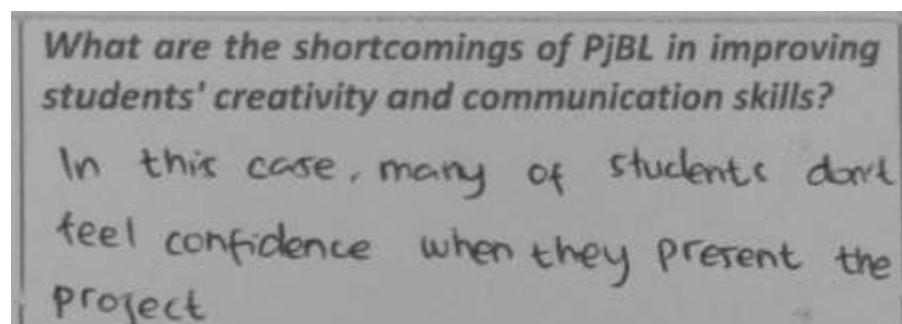 What are the shortcomings of PjBL in improving
students' creativity and communication skills?
In this case, many of students don't
feel confidence when they present the
project